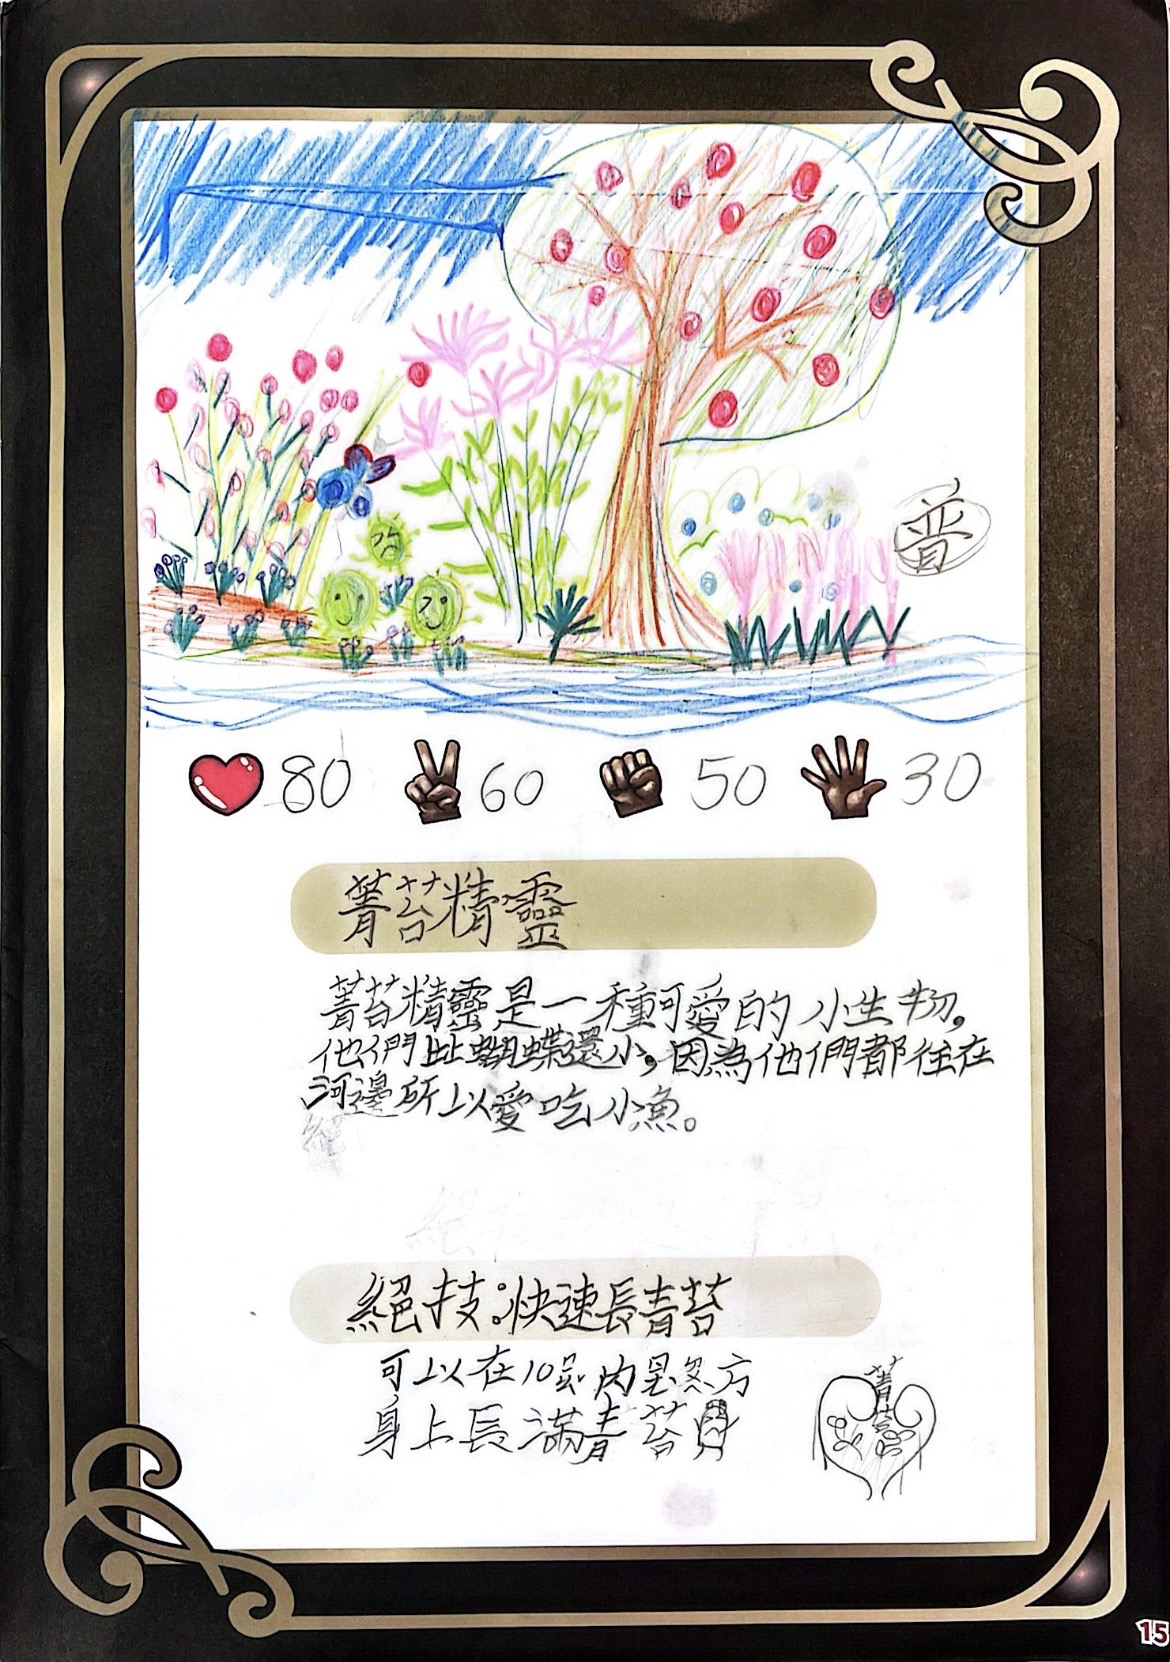 普
80 60 50 30
菁苔精靈
菁苔精靈是一種可愛的小生物,
他們比蝴蝶還小,因為他們都住在
河邊所以愛吃小漁。
絕技:快速長青苔
可以在10 內 方
身上長滿青苔
菁苔
15